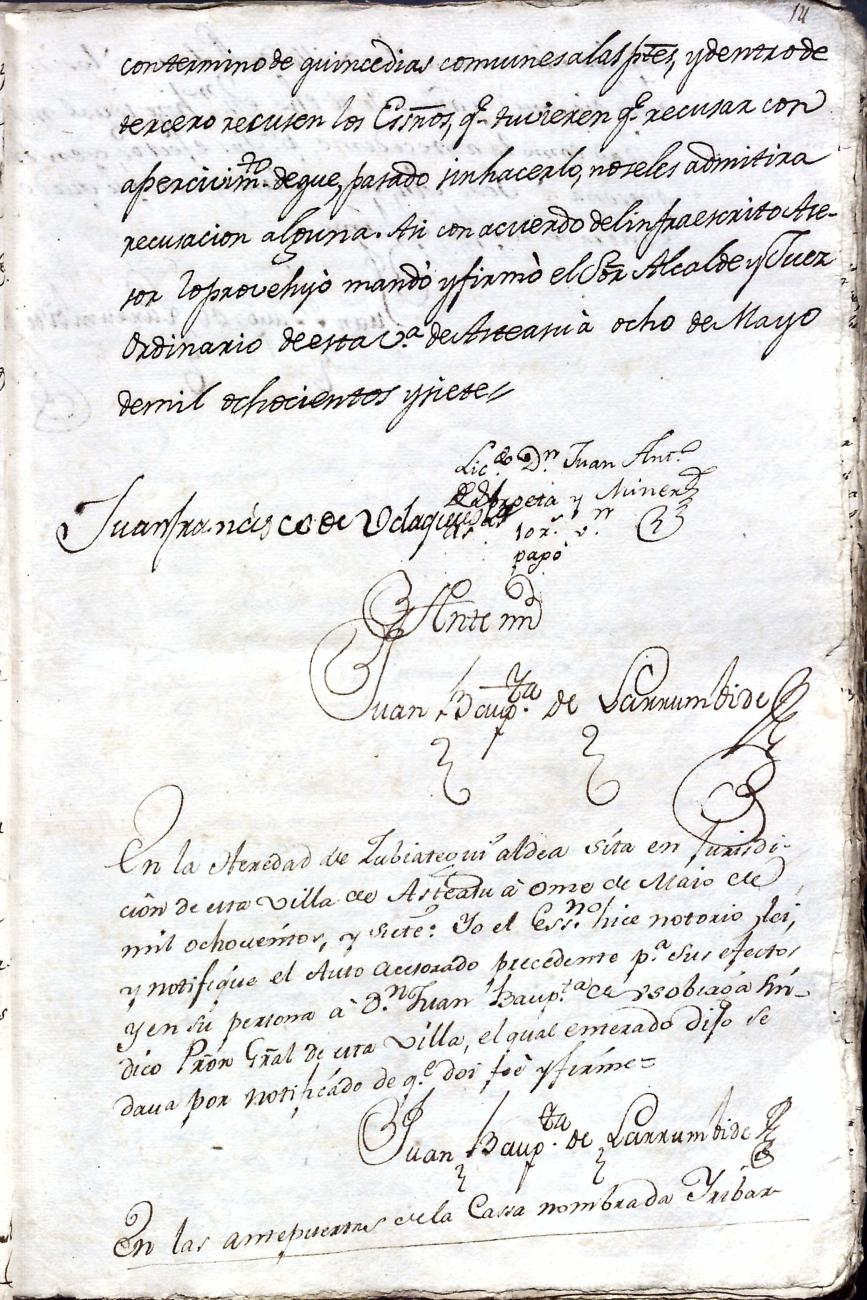 14
con termino de quince dias comunes a las ptes, y dentro de
tercero recusen los Essños, q.e tuvieren q.e recusar con
apercivim.to de que, pasado sin hacerlo, no seles admitira
recusacion alguna. Asi con acuerdo del infraescrito Ase-
sor lo provehyò mandò y firmò el Sor Alcalde y Juez
Ordinario de esta V.a de Asteasu à ocho de Mayo
de mil ochocientos y siete
Lic.do D.n Juan Ant.o
y Miner
Juan fran.cisco de
papò
Ante mi
Juan Baup.ta de Larrumbide
En la Heredad de Zubiategui aldea sita en Jurisdi-
ción de esta Villa de Asteasu à onze de Maio de
mil ochocientos, y siete: Yo el Ess.no hice notorio, lei,
y notifiqúe el Auto acesorado precedente p.a sus efectos
y en sú persona à D.n Juan Baup.ta de Ysobiaga Sín-
dico Prõn Grãl de esta Villa, el qual enterado dijo se
dava por notificàdo de q.e doi feè y firme=
Juan Baup.ta de Larrumbide
En las antepuertas de la Cassa nombrada Yribar-